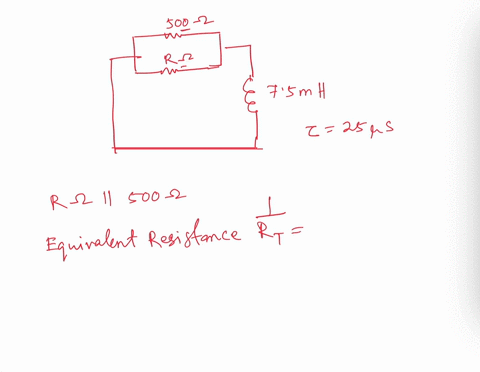 500 Ω
R Ω
7.5 mH
τ = 25 μs
R Ω || 500 Ω
Equivalent Resistance 1/R_T =